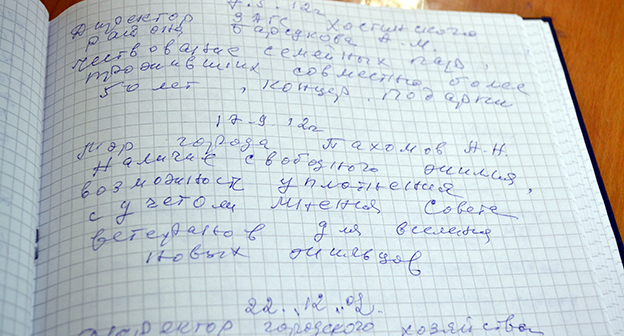 7.5.12г
Директор ЗАГС Хостинского
района Барсукова А.М.
чествование семейных пар,
проживших совместно более
50 лет, концер. подарки
17-9 12г
Мэр города Пахомов А.Н.
Наличие свободного жилия,
возможность уплотнения
с учетом мнения Совета
ветеранов для вселения
новых жильцов
22..12..02.
Директор городского хозяйства